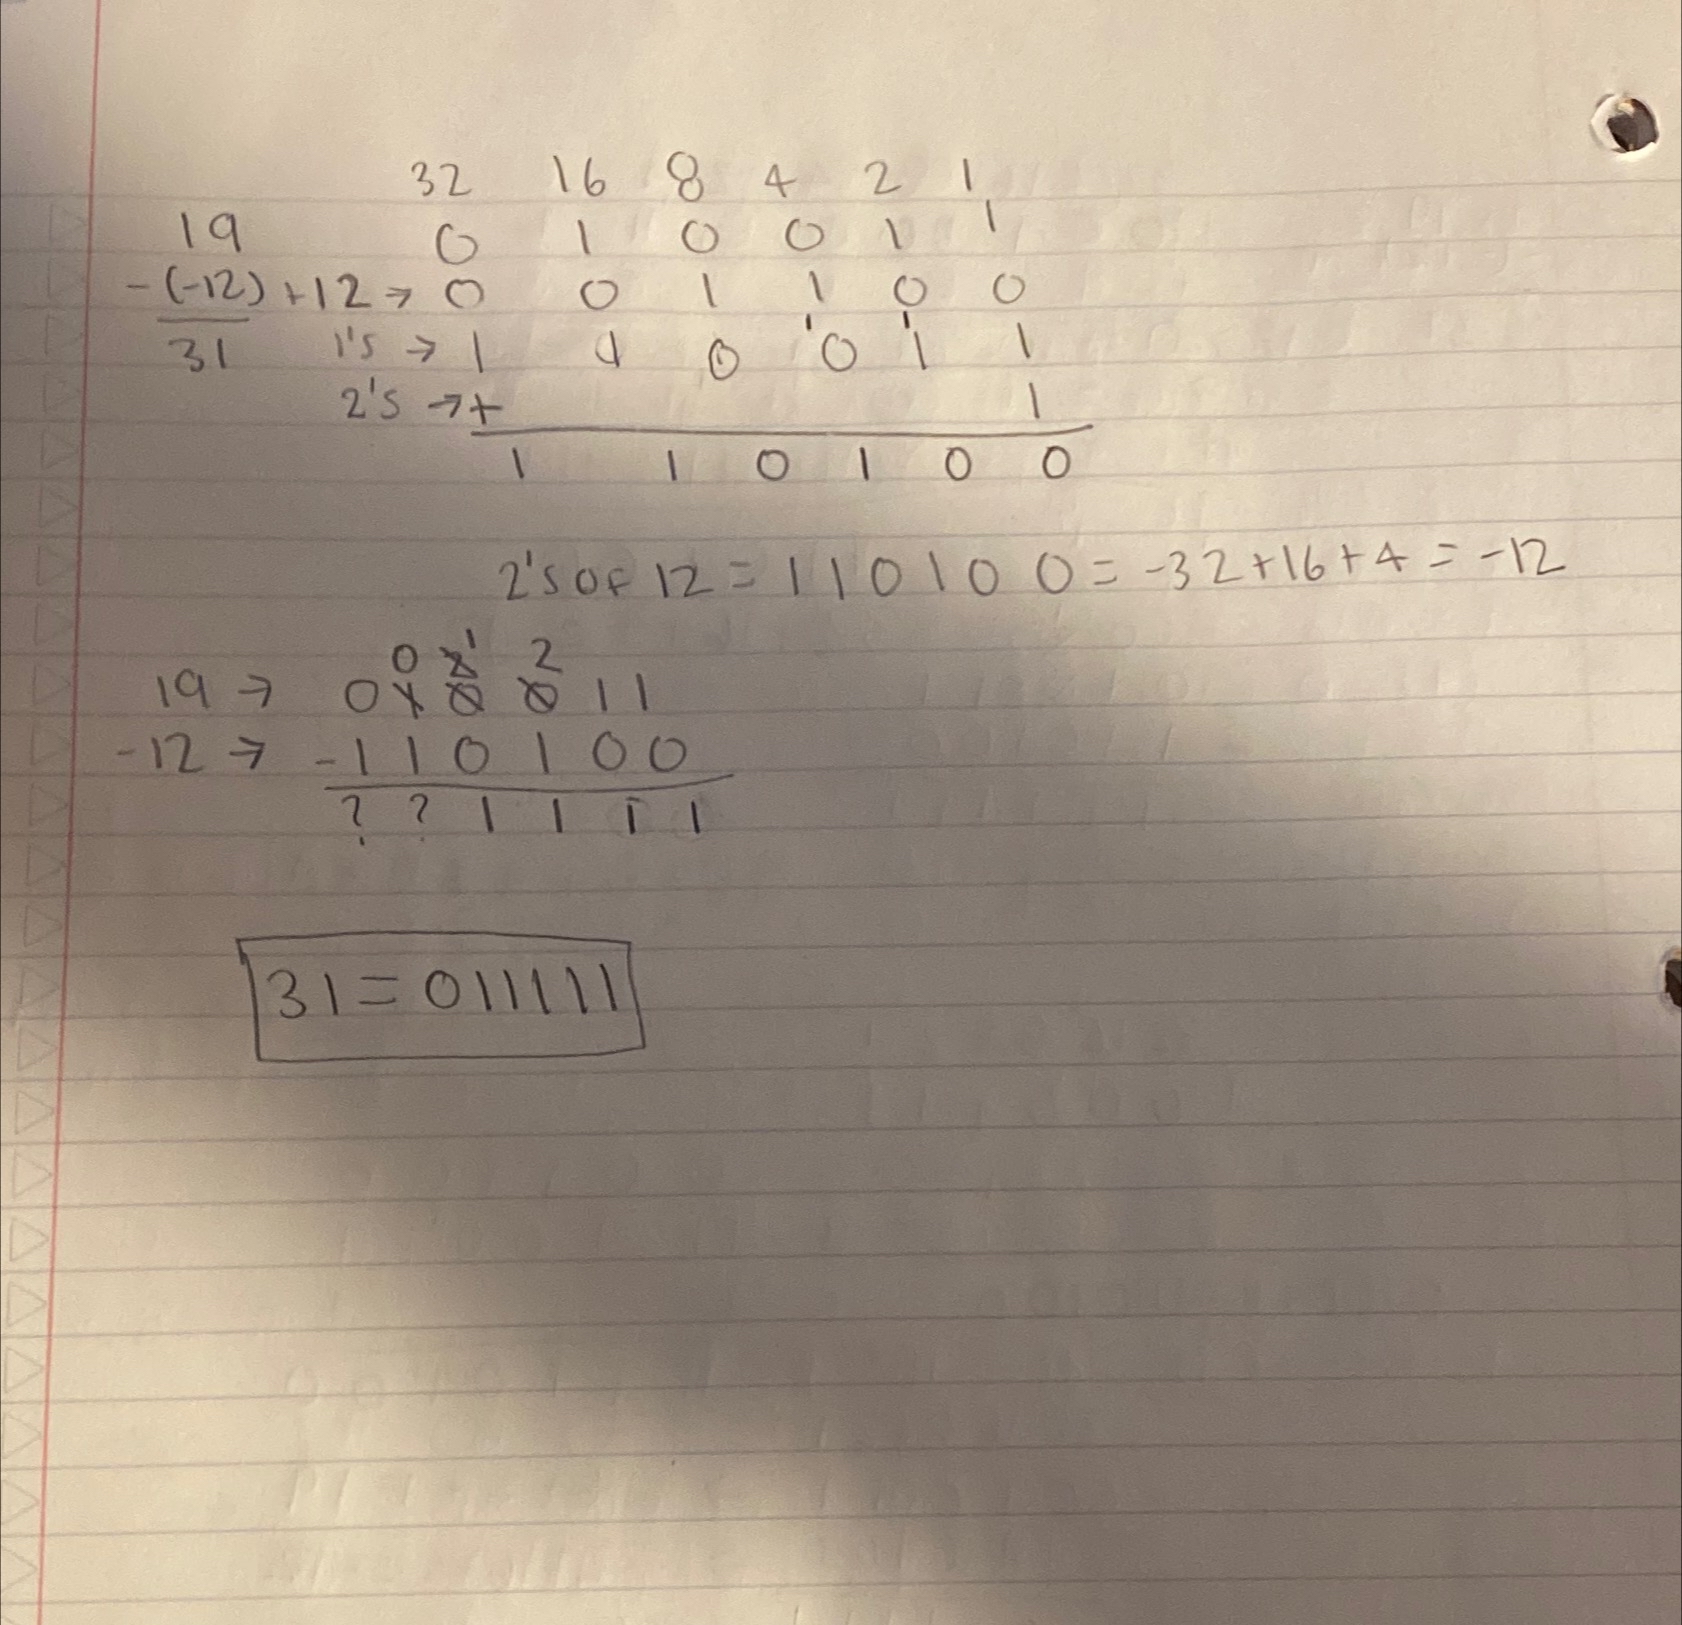 32 16 8 4 2 1
19 0 1 0 0 1 1
-(-12) +12 → 0 0 1 1 0 0
31 1's → 1 1 0 0 1 1
2's → + 1
1 1 0 1 0 0
2's of 12 = 110100 = -32+16+4 = -12
0 2 1 2
19 → 010011
-12 → -110100
? ? 1 1 1 1
31 = 011111